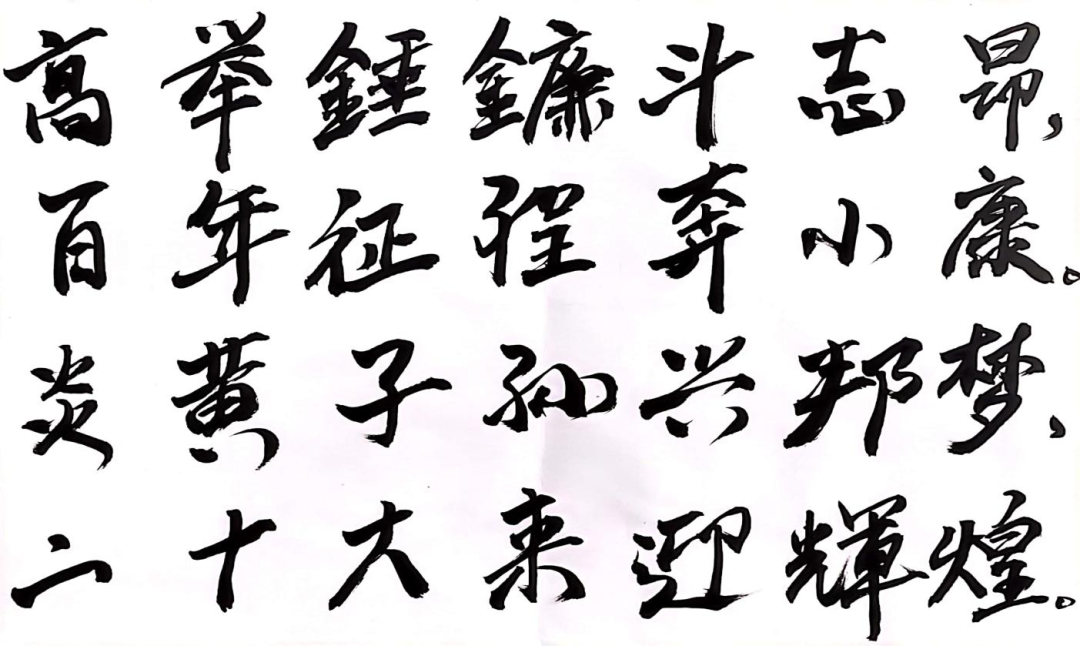 高举錘鐮斗志昂，
百年征程奔小康。
炎黄子孙兴邦梦，
二十大来迎輝煌。